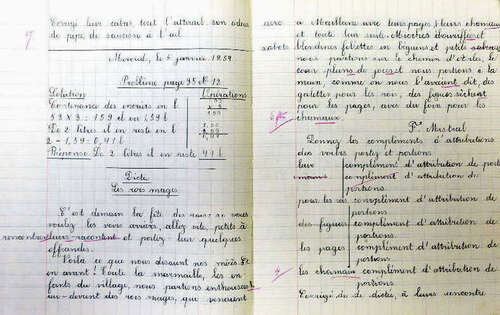 Corrigé leur cabas, tout l'attirail, son odeur
de pipe de saucisson à l'ail.
Mercredi, le 7 janvier 1959
Problème page 95 N° 12
Solution Opérations
Contenance des encriers en l
53 X 3 = 159 cl ou 1,59 l
De 2 litres il en reste en l
2 - 1,59 = 0,41 l
Réponse De 2 litres il en reste 41 cl
Dictée
Les rois mages
C'est demain la fête des rois si vous
voulez les voir arriver, allez vite, petits à
rencontre et portez leur quelques
offrandes.
Voilà ce que nous disaient nos mères Et
en avant ! Toute la marmaille, les en
fants du village, nous partions enthousiastes
au-devant des rois mages, qui venaient
à Maillane avec leurs pages, leurs chameaux
et toute leur suite. Mioches
blondines follettes en béguins et petits sabots
nous partions sur le chemin d'Arles, le
cœur plein de joie et nous portions à la
main, comme on nous l'avait dit, des
galettes pour les rois, des figues sèches
pour les pages, avec du foin pour les
chameaux.
F. Mistral
Donnez les compléments d'attributions
des verbes portez et portions
leur complément d'attribution de portez
complément d'attribution de
portions.
pour les rois complément d'attribution de
portions
des figues complément d'attribution de
portions.
les pages complément d'attribution de
portions.
les chameaux complément d'attribution de
portions.
Corrigé de la dictée, à leurs rencontre